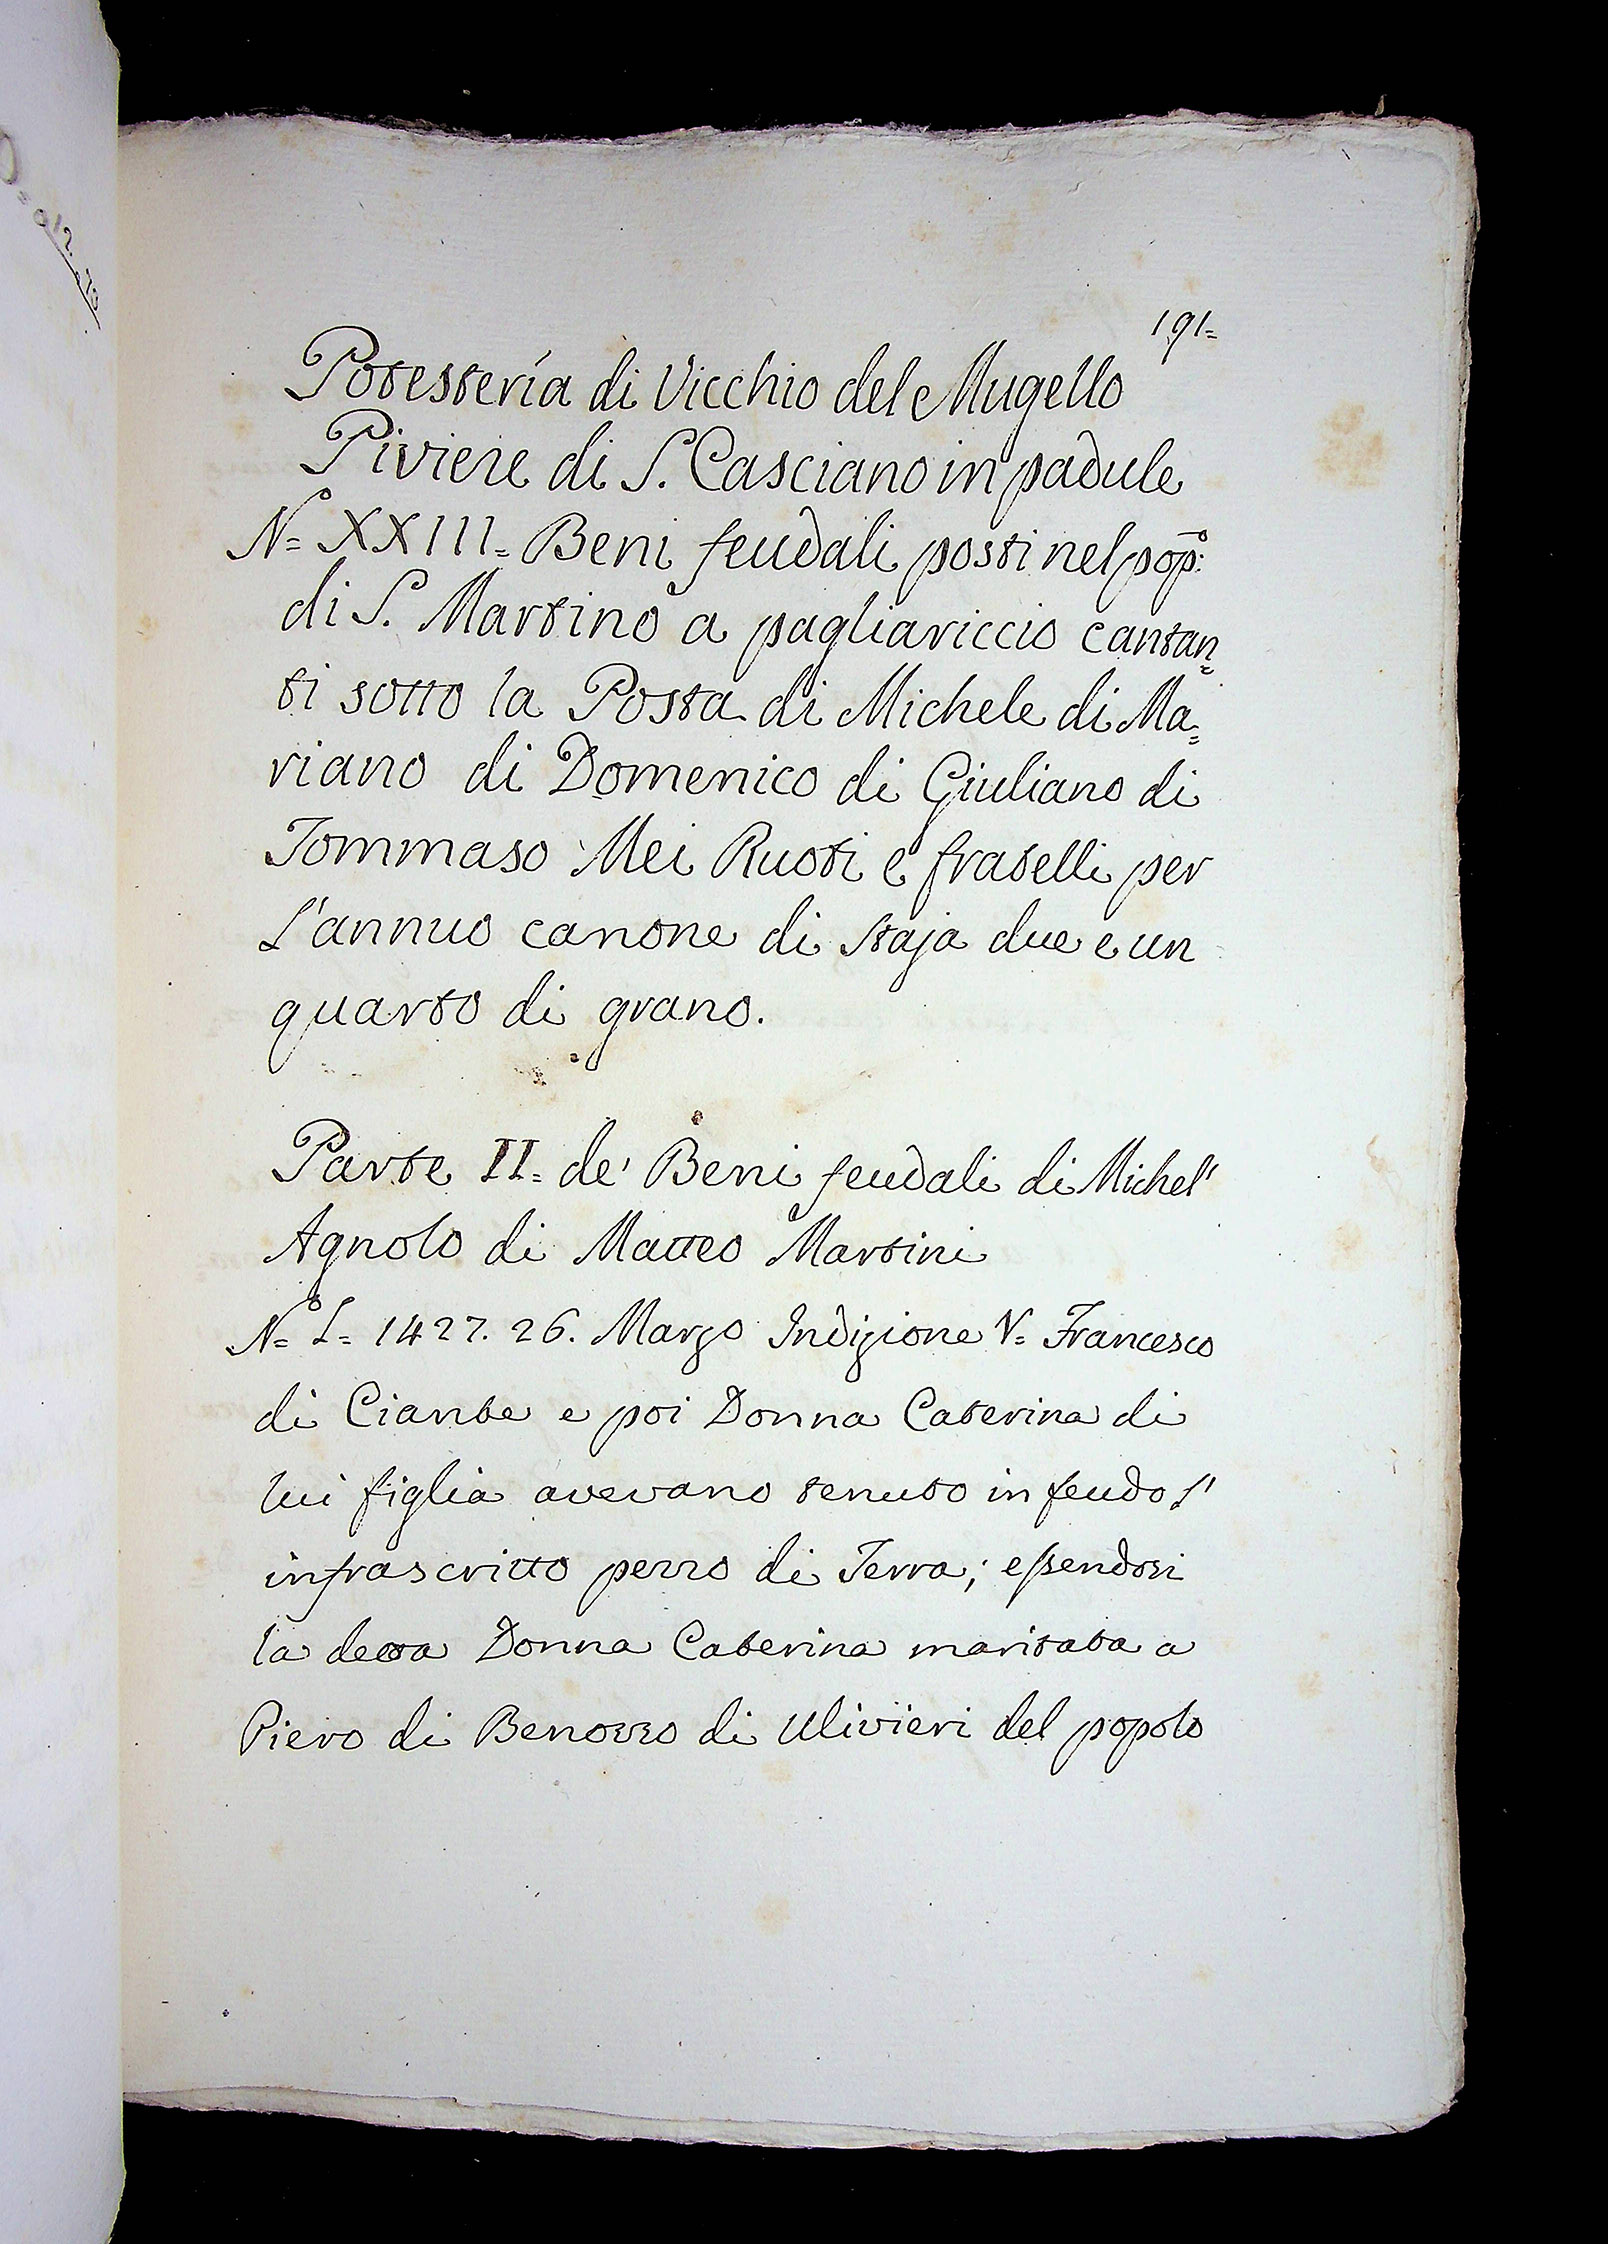 191=
Potestería di Vicchio del Mugello
Piviere di S. Casciano in padule
N.º XXIII= Beni feudali posti nel pop:º
di S. Martino a pagliariccio cantan=
ti sotto la Posta di Michele di Ma=
riano di Domenico di Giuliano di
Tommaso Mei Ruoti e fratelli per
L'annuo canone di staja due e un
quarto di grano.
Parte II= de' Beni feudali di Michel'
Agnolo di Matteo Martini
N.º L= 1427. 26. Marzo Indizione V= Francesco
di Ciante e poi Donna Caterina di
lui figlia avevano tenuto in feudo l'
infrascritto pezzo di Terra; essendosi
la detta Donna Caterina maritata a
Piero di Benozzo di Ulivieri del popolo